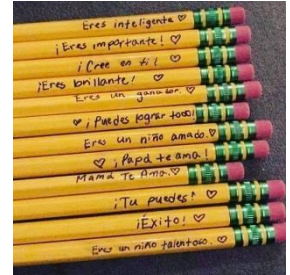 Eres inteligente ♡
¡Eres importante! ♡
¡Cree en ti! ♡
¡Eres brillante! ♡
Eres un ganador. ♡
♥ ¡Puedes lograr todo!
Eres un niño amado. ♡
♡ ¡Papá te ama!
Mamá Te Ama. ♡
¡Tu puedes! ♡
¡Exito! ♡
Eres un niño talentoso. ♡